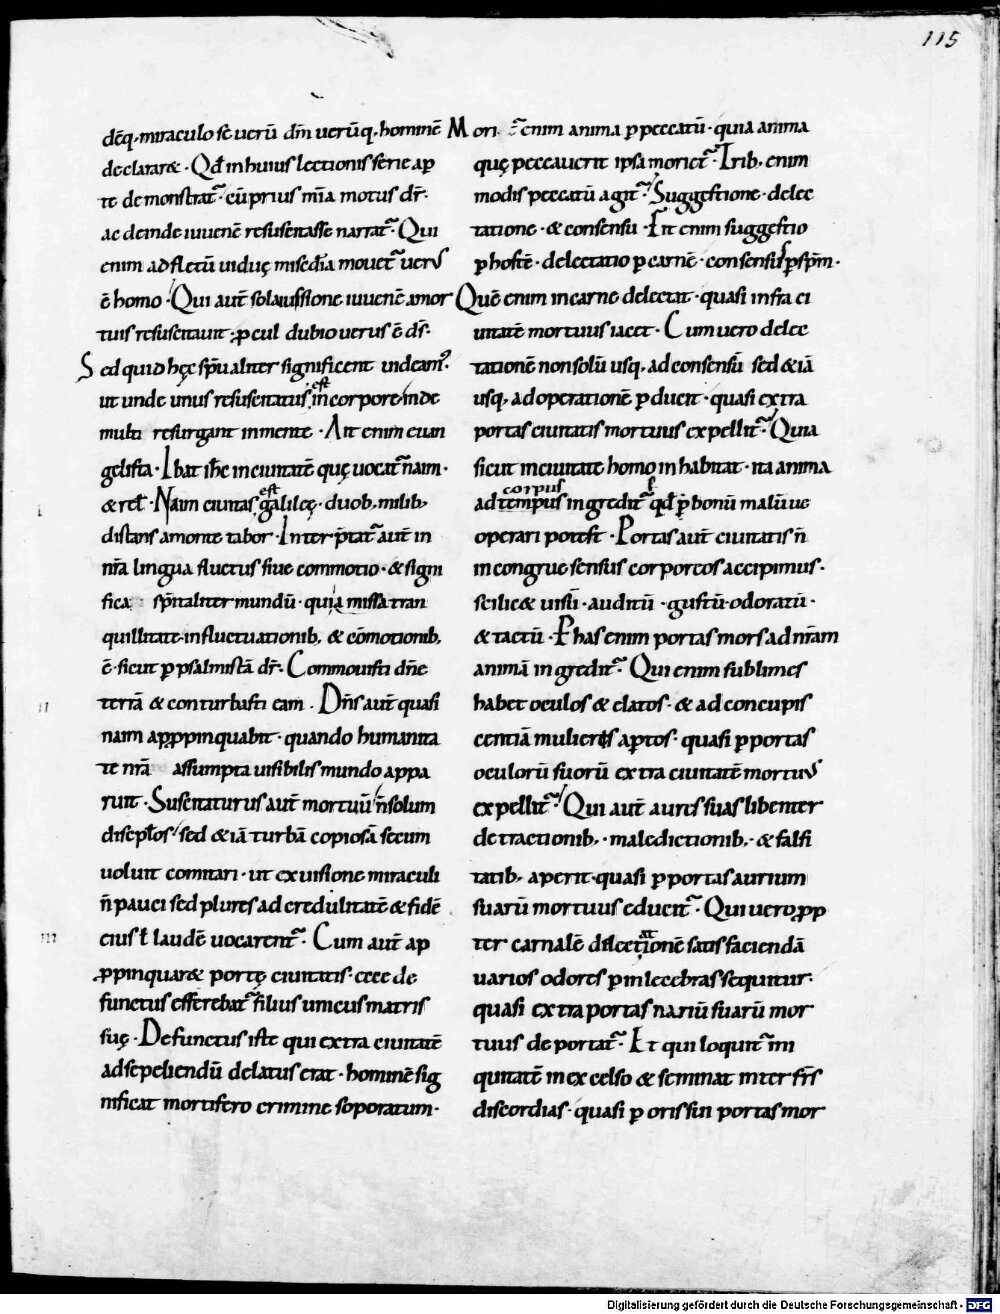 115
dēq; miraculo se uerū dm̄ uerūq; hominē
declararet. Qd̄ in huius lectionis serie ap
te demonstrat̃. cū prius mīa motus dr̄.
ac deinde iuuenē resuscitasse narrat̃. Qui
enim ad fletū uiduę misc̄dia mouet̃ uerus
ē homo. Qui aut̄ sola iussione iuuenē a mor
tuis resuscitauit. ꝓcul dubio uerus ē ds̄.
Sed quid hęc sp̄ualiter significent uideam᾽.
ut unde unus resuscitatus est in corpore inde
multi resurgant in mente. Ait enim euan
gelista. Ibat ih̄c in ciuitatē quę uocat̃ naim.
& rel̄. Naim ciuitas est galileę. duob; milib;
distans a monte tabor. Interp̄tat̃ aut̄ in
nr̄a lingua fluctus siue commotio. & signi
fica sp̄italiter mundū. quia missa tran
quillitate in fluctuationib; & cōmotionib;
ē. sicut ꝑ psalmistā dr̄. Commouisti dn̄e
terrā & conturbasti eam. Dn̄s aut̄ quasi
naim apꝓpinquabit. quando humanita
te nr̄a assumpta uisibilis mundo appa
ruit. Suscitaturus aut̄ mortuū n̄ solum
discipl̄os sed &iā turbā copiosā secum
uoluit comitari. ut ex uisione miraculi
n̄ pauci sed plures ad credulitatē & fidē
eius t̄ laudē uocarent̃. Cum aut̄ ap
ꝓpinquaret portę ciuitatis. ecce de
functus efferebat̃ filius unicus matris
suę. Defunctus iste qui extra ciuitatē
ad sepeliendū delatus erat. hominē sig
nificat mortifero crimine soporatum.
Mori. enim anima ꝑ peccatū. quia anima
quę peccauerit ipsa moriet̃. Trib; enim
modis peccatū agit̃. Suggestione. delec
tatione. & consensu. Fit enim suggestio
ꝑ hostē. delectatio ꝑ carnē. consensus ꝑ sp̄m.
Quē enim in carne delectat. quasi infra ci
uitatē mortuus iacet. Cum uero delec
tationē non solū usq; ad consensū sed &iā
usq; ad operationē ꝑducit. quasi extra
portas ciuitatis mortuus expellit̃. Quia
sicut in ciuitate homo inhabitat. ita anima
corpus
ad tempus ingredit̃ ꝑ qd̄ bonū malūue
operari potest. Portas aut̄ ciuitatis n̄
incongrue sensus corporeos accipimus.
scilicet uisū. auditū. gustū. odoratū.
& tactū. Per has enim portas mors ad nr̄am
animā ingredit̃. Qui enim sublimes
habet oculos & elatos. & ad concupis
centiā mulieris aptos. quasi ꝑ portas
oculorū suorū extra ciuitatē mortuus
expellit̃. Qui aut̄ aures suas libenter
detractionib;. maledictionib;. & falsi
tatib; aperit. quasi ꝑ portas aurium
suarū mortuus educit̃. Qui uero ꝓp
ter carnalē dilectationē satisfaciendā
uarios odores ꝑ inlecebras sequitur.
quasi extra portas nariū suarū mor
tuus deportat̃. Et qui loquit̃ ini
quitatē in excelso & seminat inter fr̄s
discordias. quasi ꝑ oris sui portas mor
Digitalisierung gefördert durch die Deutsche Forschungsgemeinschaft - DFG